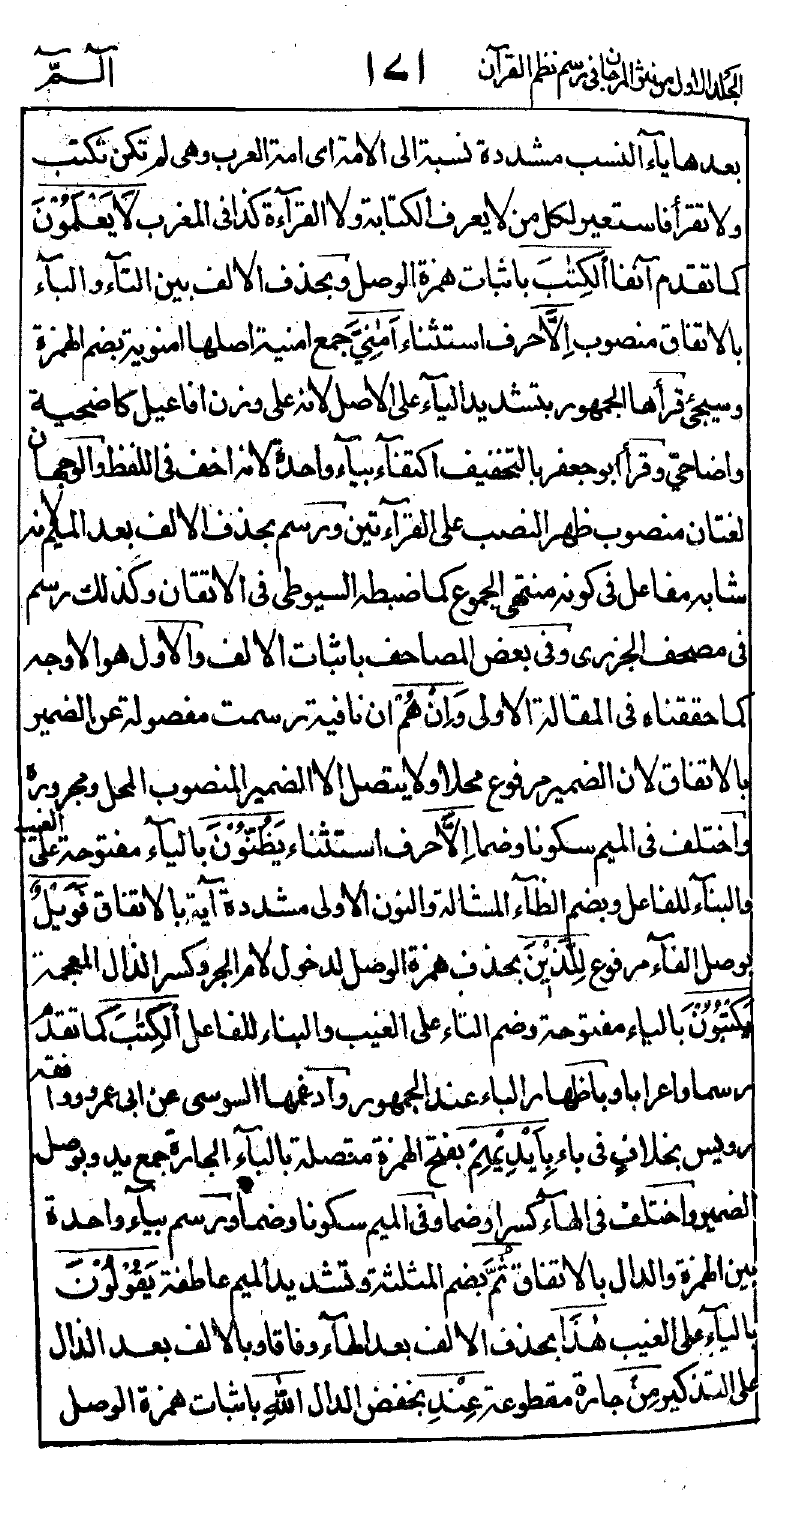 المجلد الاول من نثر المرجان فى رسم نظم القرآن ١٧١ الٓـمّٓ
بعدها ياء النسب مشددة نسبة الى الامة اى امة العرب وهى لم تكن تكتب
ولا تقرأ فاستعير لكل من لا يعرف الكتابة ولا القرآءة كذا فى المغرب لَا يَعْلَمُوْنَ
كما تقدم آنفا اَلْكِتٰبَ باثبات همزة الوصل وبحذف الالف بين التآء والبآء
بالاتفاق منصوب اِلَّا حرف استثناء اَمَانِيَّ جمع امنية اصلها امنوية بضم الهمزة
وسيجئ قرأها الجمهور بتشديد اليآء على الاصل لانه على وزن افاعيل كاضحية
واضاحيّ وقرأ ابو جعفر بالتخفيف اكتفآء بيآء واحدة لانه اخف فى اللفظ والوجهان
لغتان منصوب ظهر النصب على القرآءتين ورسم بحذف الالف بعد الميم لانه
شابه مفاعل فى كونه منتهى الجموع كما ضبطه السيوطى فى الاتقان وكذلك رسم
فى مصحف الجزرى وفى بعض المصاحف باثبات الالف والاول هو الاوجه
كما حققناه فى المقالة الاولى وَاِنْ هُمْ ان نافية رسمت مفصولة عن الضمير
بالاتفاق لان الضمير مرفوع محلا ولا يتصل الا الضمير المنصوب المحل ومجروره
واختلف فى الميم سكونا وضما اِلَّا حرف استثناء يَظُنُّوْنَ باليآء مفتوحة على الغيب
والبنآء للفاعل وبضم الظآء المشالة والنون الاولى مشددة آية بالاتفاق فَوَيْلٌ
بوصل الفآء مرفوع لِلَّذِيْنَ بحذف همزة الوصل لدخول لام الجر وكسر الذال المعجمة
يَكْتُبُوْنَ بالياء مفتوحة وضم التاء على الغيب والبناء للفاعل اَلْكِتٰبَ كما تقدم
رسما واعرابا وباظهار الباء عند الجمهور وادغمها السوسى عن ابى عمرو ووافقه
رويس بخلافٍ فى باء بِاَيْدِيْهِمْ بفتح الهمزة متصلة بالبآء الجارة جمع يد وبوصل
الضمير واختلف فى الهآء كسرا وضما وفى الميم سكونا وضما ورسم بيآء واحدة
بين الهمزة والدال بالاتفاق ثُمَّ بضم المثلثة وتشديد الميم عاطفة يَقُوْلُوْنَ
باليآء على الغيب هٰذَا بحذف الالف بعد الهآء وفاقا وبالالف بعد الذال
على التذكير مِنْ جارة مقطوعة عِنْدِ بخفض الدال اللّٰهِ باثبات همزة الوصل